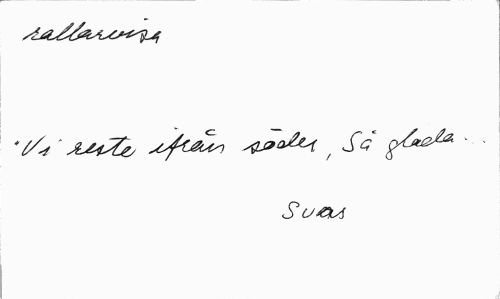 rallarvisa
"Vi reste ifrån söder, Så glada...
Svas